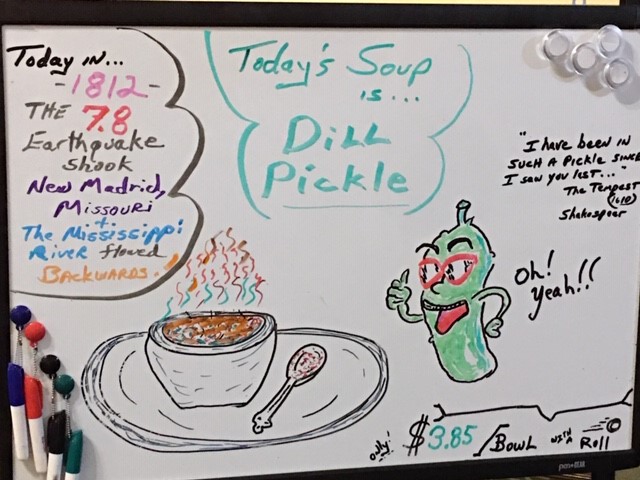 Today in...
-1812-
THE 7.8
Earthquake
shook
New Madrid,
Missouri
+
The Mississippi
River flowed
BACKWARDS!
Today's Soup
is...
DiLL
Pickle
"I have been in
SUCH A Pickle SINCE
I saw you last..."
The Tempest
1610
Shakespear
Oh!
Yeah!!
only!
$3.85 /BowL WITH A Roll